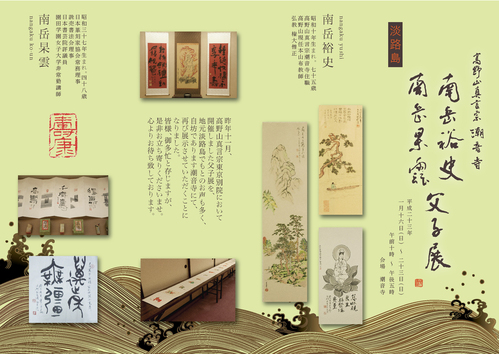 淡路島
高野山真言宗 潮音寺
南岳裕史
南岳杲雲
父子展
平成二十三年
一月十六日(日)、二十三日(日)
午前十時〜午後五時
会場 潮音寺
南岳裕史
nangaku yushi
昭和十年生まれ、七十五歳
高野山真言宗潮音寺住職
高野山現在本山布教師
弘教 権大僧正
昨年十一月、
高野山真言宗東京別院において
開催しました父子展を、
地元淡路島でもとのお声も多く、
自坊であります潮音寺にて、
再び展示させていただくことに
なりました。
皆様、御多忙と存じますが、
是非お立ち寄りくださいませ。
心よりお待ち致しております。
南岳杲雲
nangaku koun
昭和三十七年生まれ、四十八歳
日本篆刻家協会常務理事
読売書法会理事
日本書芸院評議員
園田学園女子大学非常勤講師